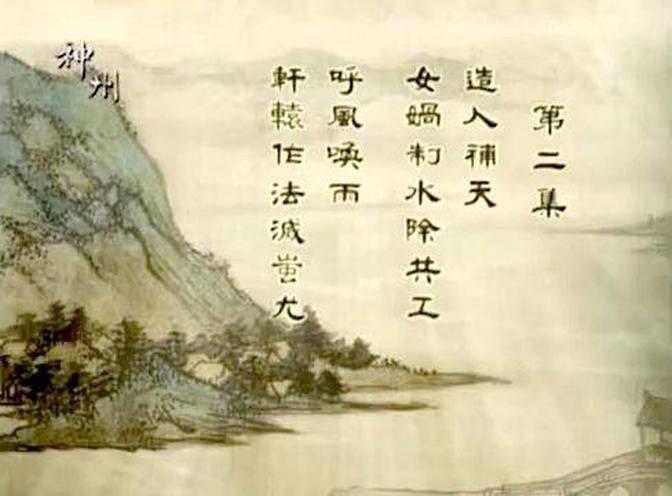 第二集
造人補天
女媧制水除共工
呼風喚雨
軒轅作法滅蚩尤
神州